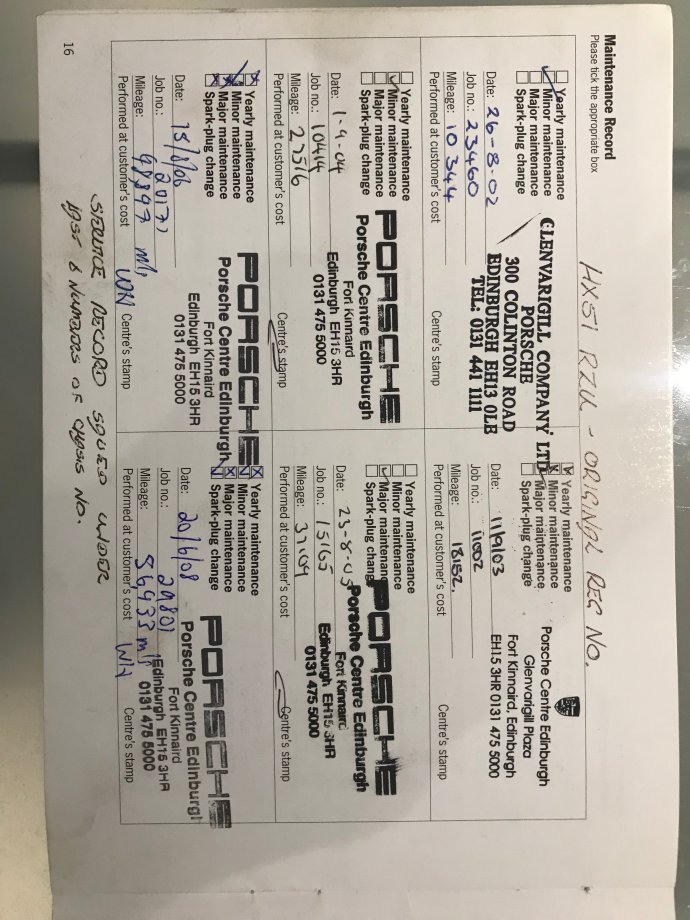 Maintenance Record
Please tick the appropriate box
HX51 RZU - ORIGINAL REG NO.
Yearly maintenance
Minor maintenance
Major maintenance
Spark-plug change
Date: 26-8-02
Job no.: 23460
Mileage: 10344
Performed at customer's cost
GLENVARIGILL COMPANY LTD
PORSCHE
300 COLINTON ROAD
EDINBURGH EH13 0LB
TEL: 0131 441 1111
Centre's stamp
Yearly maintenance
Minor maintenance
Major maintenance
Spark-plug change
Date: 11/9/03
Job no.: 11002
Mileage: 18152.
Performed at customer's cost
Porsche Centre Edinburgh
Glenvarigill Plaza
Fort Kinnaird, Edinburgh
EH15 3HR 0131 475 5000
Centre's stamp
Yearly maintenance
Minor maintenance
Major maintenance
Spark-plug change
Date: 1-9-04
Job no.: 10414
Mileage: 27516
Performed at customer's cost
PORSCHE
Porsche Centre Edinburgh
Fort Kinnaird
Edinburgh EH15 3HR
0131 475 5000
Centre's stamp
Yearly maintenance
Minor maintenance
Major maintenance
Spark-plug change
Date: 23-8-05
Job no.: 15165
Mileage:
Performed at customer's cost
PORSCHE
Porsche Centre Edinburgh
Fort Kinnaird
Edinburgh EH15 3HR
0131 475 5000
Centre's stamp
Yearly maintenance
Minor maintenance
Major maintenance
Spark-plug change
Date:
Job no.: 20177
Mileage:
Performed at customer's cost
PORSCHE
Porsche Centre Edinburgh
Fort Kinnaird
Edinburgh EH15 3HR
0131 475 5000
WH Centre's stamp
Yearly maintenance
Minor maintenance
Major maintenance
Spark-plug change
Date: 20/6/08
Job no.: 29801
Mileage: 56933 mls
Performed at customer's cost
PORSCHE
Porsche Centre Edinburgh
Fort Kinnaird
Edinburgh EH15 3HR
0131 475 5000
WH Centre's stamp
SERVICE RECORD UNDER
LAST 6 NUMBERS OF CHASIS NO.
16